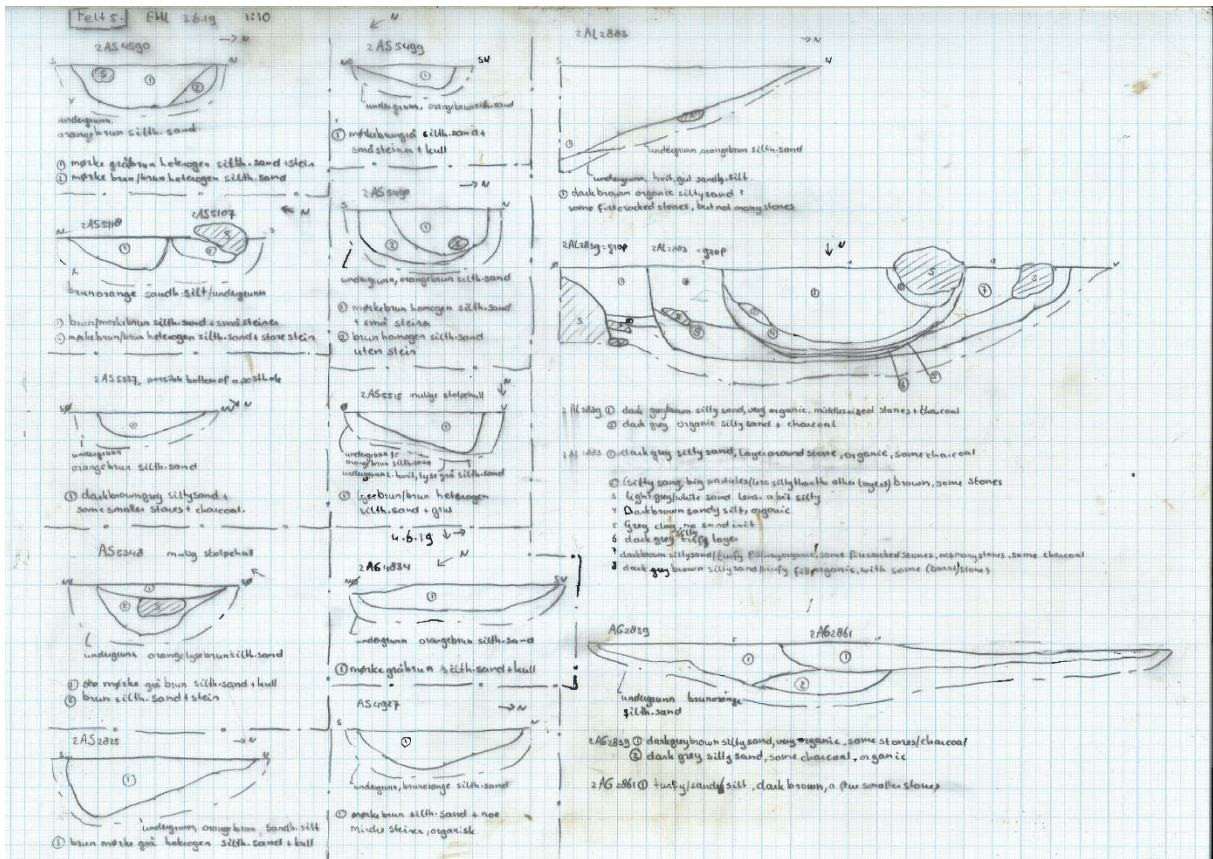 Felt 5. EHL 3.6.19 1:10
2AS4590
→ N
S N
① ② S
undergrunn
orangebrun silth. sand
① mørke gråbrun heterogen silth. sand + stein
② mørke brun/brun heterogen silth. sand
2AS5118 2AS5107
← N
N S
① ① S
brunorange sandh. silt/undergrunn
① brun/mørkebrun silth. sand + små steiner
① mørke brun/brun heterogen silth. sand + store stein
possible bottom of a posthole
SØ NV N
①
undergrunn
orangebrun silth. sand
① dark browngrey silty sand +
some smaller stones + charcoal.
AS5348 mulig stolpehull
NV SØ
① ② S
undergrunn orangelysebrun silth. sand
① mørke grå brun silth. sand + kull
② brun silth. sand + stein
2AS2825
→ N
S N
①
undergrunn, orangebrun, sandh. silt
① brun mørke grå heterogen silth. sand + kull
← N
2AS5499
NØ SV
①
undergrunn, orangebrun silth. sand
① mørkebrungrå silth. sand +
små steiner + kull
2AS5490
→ N
S N
① ② S
undergrunn, orangebrun silth. sand
① mørkebrun homogen silth. sand
+ små steiner
② brun homogen silth. sand
uten stein
2AS5515 mulige stolpehull
↓ N
Ø V
①
undergrunn 1:
orange/brun silth. sand
undergrunn 2: hvit, lyse grå silth. sand
① brun heterogen
silth. sand + grus
4.6.19
← N
2AG4884
NØ SV
①
undergrunn orangebrun silth. sand
① mørke gråbrun silth. sand + kull
AS4927
→ N
S N
①
undergrunn, brunorange silth. sand
① mørke brun silth. sand + noe
mindre steiner, organisk
2AL2883
→ N
S N
①
undergrunn, orangebrun silth. sand
undergrunn, hvit, gul sandh. silt
① dark brown organic silty sand +
some firecracked stones, but not many stones
2AL2839 = grop 2AL2883 = grop
↓ N
Ø V
S ① ② ③ ④ ⑤ ⑥ ⑦ ⑧ S S
2AL2839 ① dark greybrown silty sand, very organic, middlesized stones + charcoal
② dark grey organic silty sand + charcoal
2AL2883 ① dark grey silty sand, layer around stone, organic, some charcoal
② (silty sand, big particles (less silty than the other layers) brown, some stones
3 light grey/white sand lens, a bit silty
4 Dark brown sandy silt, organic
5 Grey clay, no sand in it
6 dark grey silty turfy layer
7 darkbrown silty sand/turfy fill, organic, some firecracked stones, not many stones, some charcoal
8 dark grey brown silty sand/turfy fill, organic, with some stones
AG2839 2AG2861
① ① ②
undergrunn brunorange
silth. sand
2AG2839 ① dark greybrown silty sand, very organic, some stones/charcoal
② dark grey silty sand, some charcoal, organic
2AG2861 ① turfy/sandy silt, dark brown, a few smaller stones